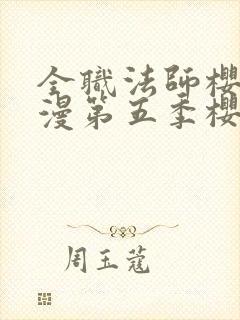 全職法師櫻
漫第五季櫻
周玉蔻